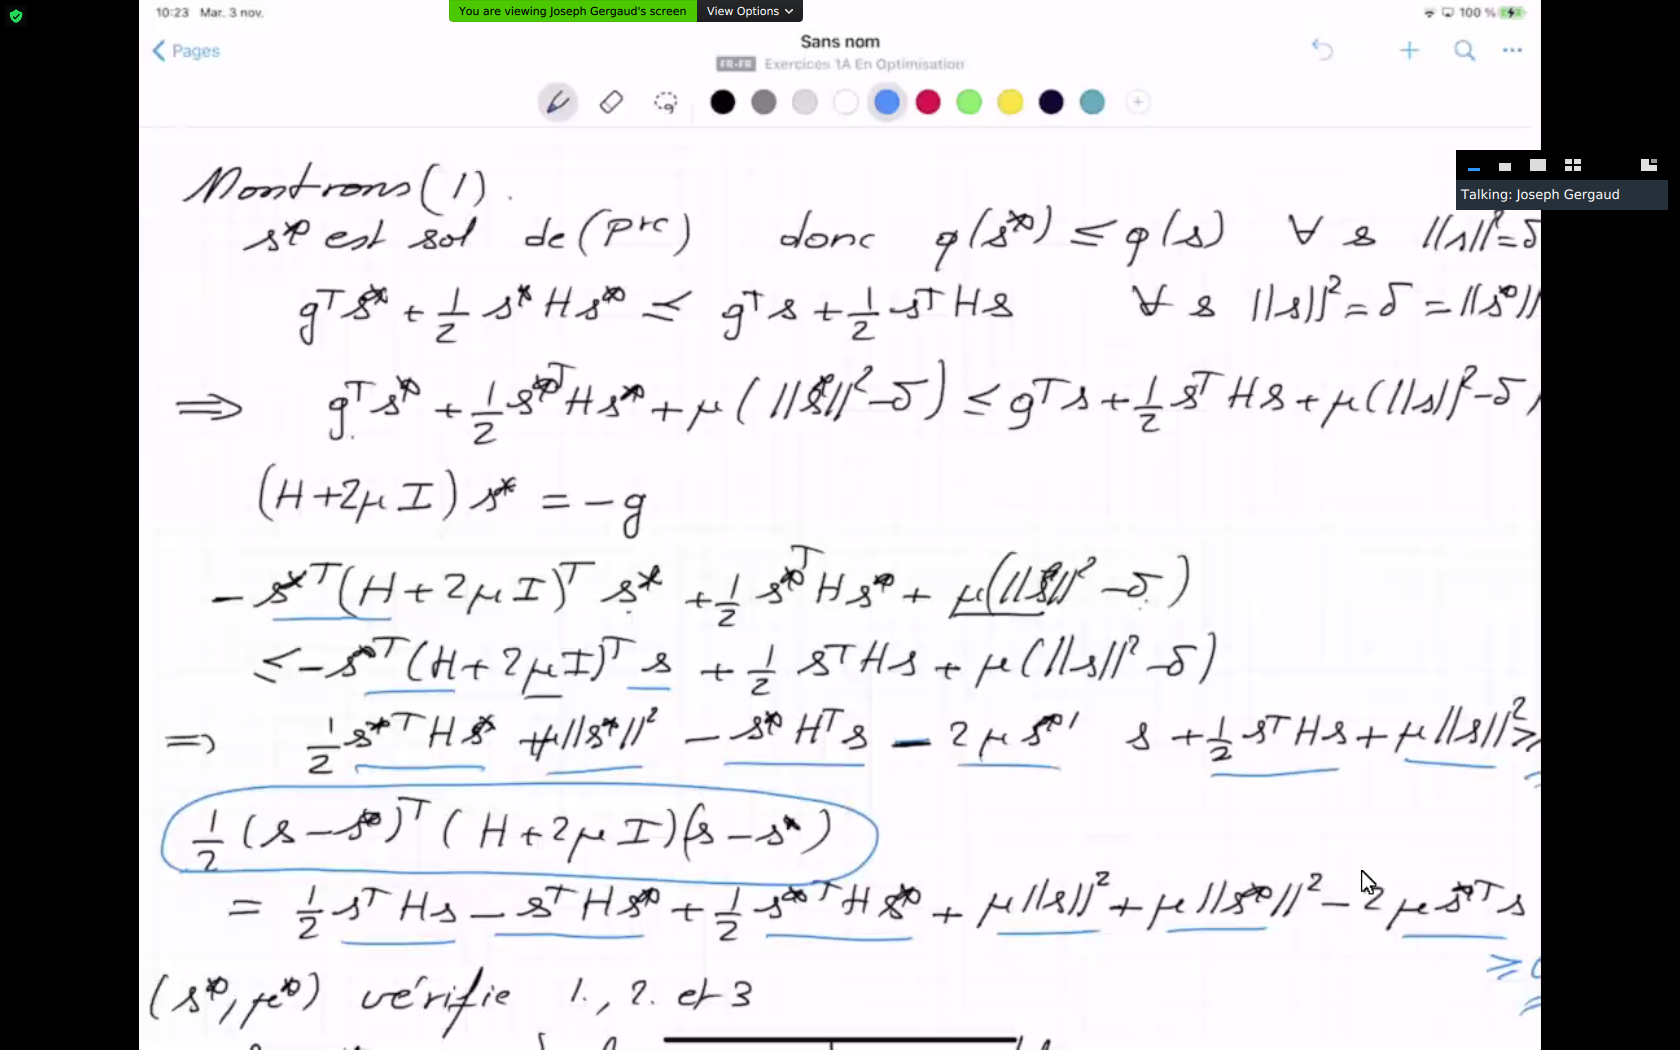 10:23 Mar. 3 nov.
You are viewing Joseph Gergaud's screen View Options
100 %
Pages
Sans nom
FR-FR Exercices 1A En Optimisation
Talking: Joseph Gergaud
Montrons (1).
s* est sol de (Prc) donc q(s*) ≤ q(s) ∀ s ||s||² = δ
gᵀs* + 1/2 s* H s* ≤ gᵀs + 1/2 sᵀHs ∀ s ||s||² = δ = ||s*||
⟹ gᵀs* + 1/2 s*ᵀHs* + μ(||s*||² - δ) ≤ gᵀs + 1/2 sᵀHs + μ(||s||² - δ)
(H + 2μI) s* = -g
- s*ᵀ(H + 2μI)ᵀ s* + 1/2 s*ᵀHs* + μ(||s*||² - δ)
≤ - s*ᵀ(H + 2μI)ᵀ s + 1/2 sᵀHs + μ(||s||² - δ)
⟹ 1/2 s*ᵀHs* + μ||s*||² - s*Hᵀs - 2μs*' s + 1/2 sᵀHs + μ||s||² ≥
1/2 (s - s*)ᵀ (H + 2μI)(s - s*)
= 1/2 sᵀHs - sᵀHs* + 1/2 s*ᵀHs* + μ||s||² + μ||s*||² - 2μs*ᵀs
≥ 0
(s*, μ*) vérifie 1., 2. et 3